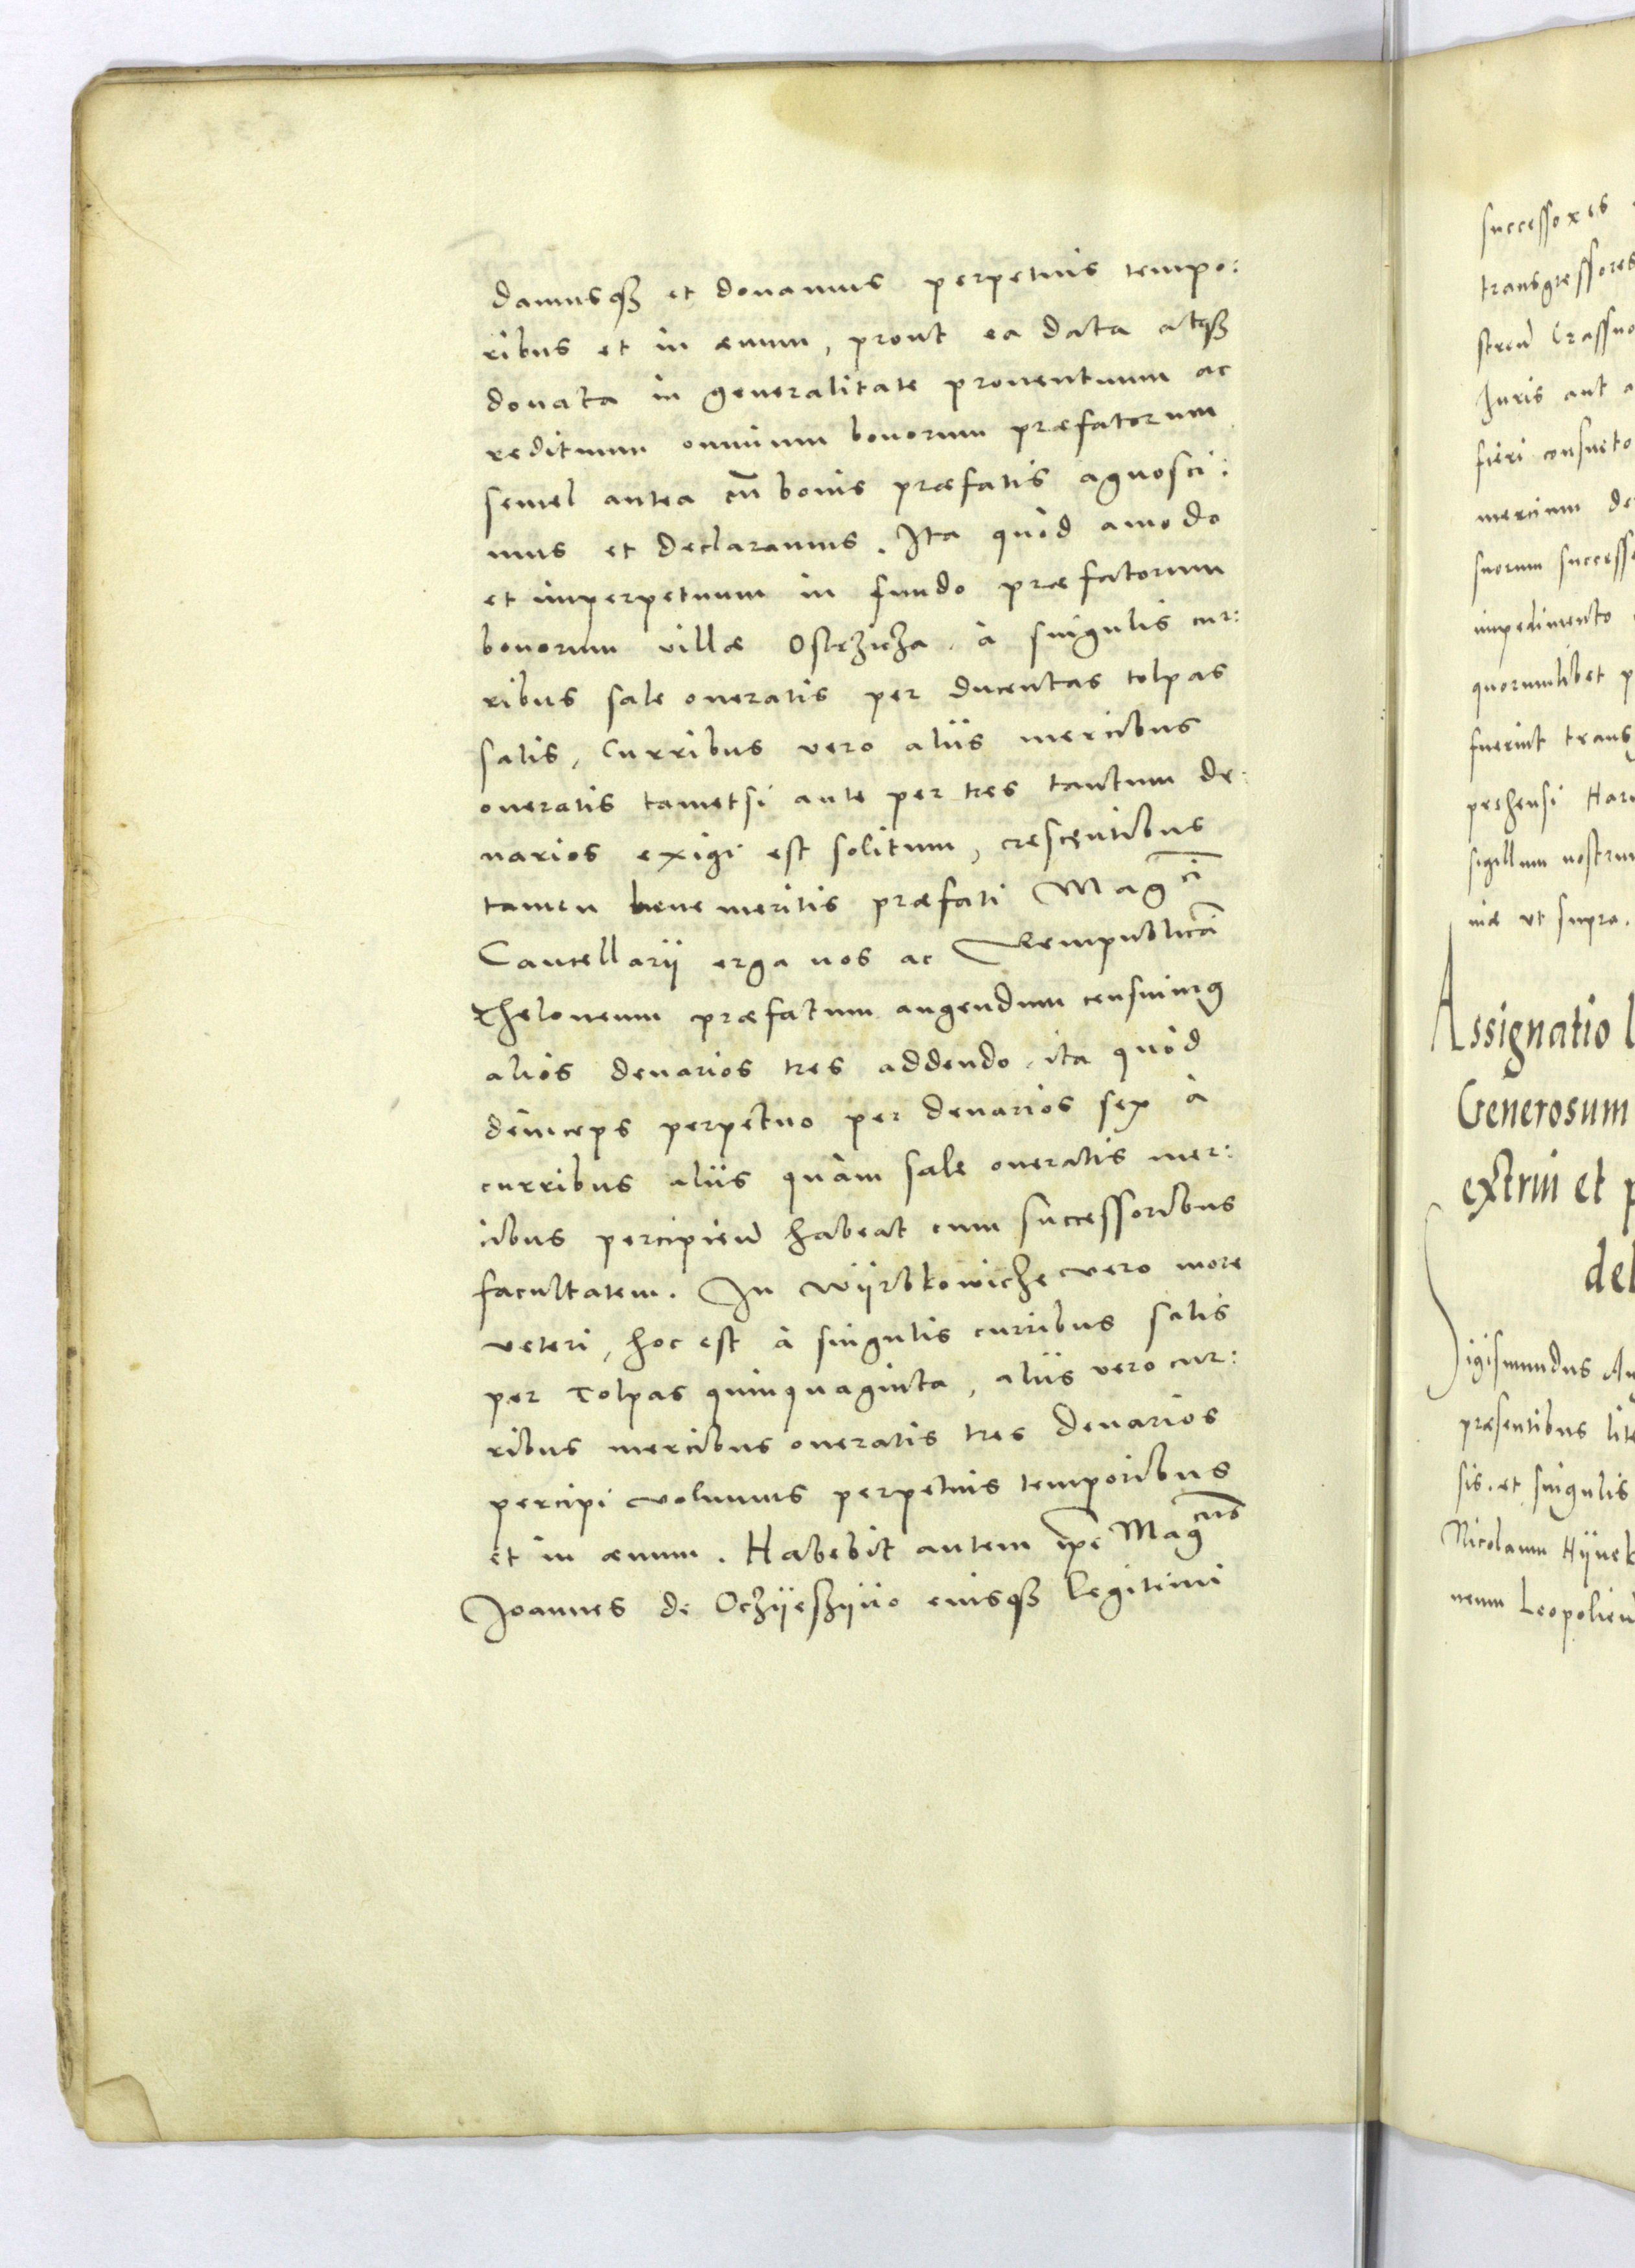 damusqȝ et donamus perpetuis tempo:
ribus et in æuum, prout ea data atqȝ
donata in generalitate prouentuum ac
redituum omnium bonorum præfatorum
semel antea cū bonis præfatis agnosci:
mus et declaramus. Ita quòd amodo
et imperpetuum in fundo præfatorum
bonorum villæ Ostrzicza. à singulis cur:
ribus sale oneratis per ducentas tolpas
salis, Curribus vero aliis mercibus
oneratis tametsi ante per tres tantum de:
narios exigi est solitum, crescentibus
tamen bene meritis præfati Mag^ci
Cancellarij erga nos ac Rempublicā
Theloneum præfatum augendum censuimꝰ
alios denarios tres addendo, ita quòd
deinceps perpetuo per denarios sex à
curribus aliis quàm sale oneratis mer:
cibus percipiend habeat cum successoribus
facultatem. In Wijrbkowicze vero more
veteri, hoc est à singulis curribus salis
per Tolpas quinquaginta, aliis vero cur:
ribus mercibus oneratis tres denarios
percipi volumus perpetuis temporibus
et in æuum. Habebit autem ipē Mag^cus
Joannes de Oczijeszijno eiusqȝ legitimi
successores
transgressores
Juris aut a
fieri consueto
mercium de
suorum success
impedimento
quorumlibet p
fuerint trans
prehensi Har
sigillum nostrum
niæ vt supra.
Assignatio
Generosum
extrui et p
del
Sigismundus Au
præsentibus lite
sis. et singulis
Nicolaum Hijnek
neum Leopolien